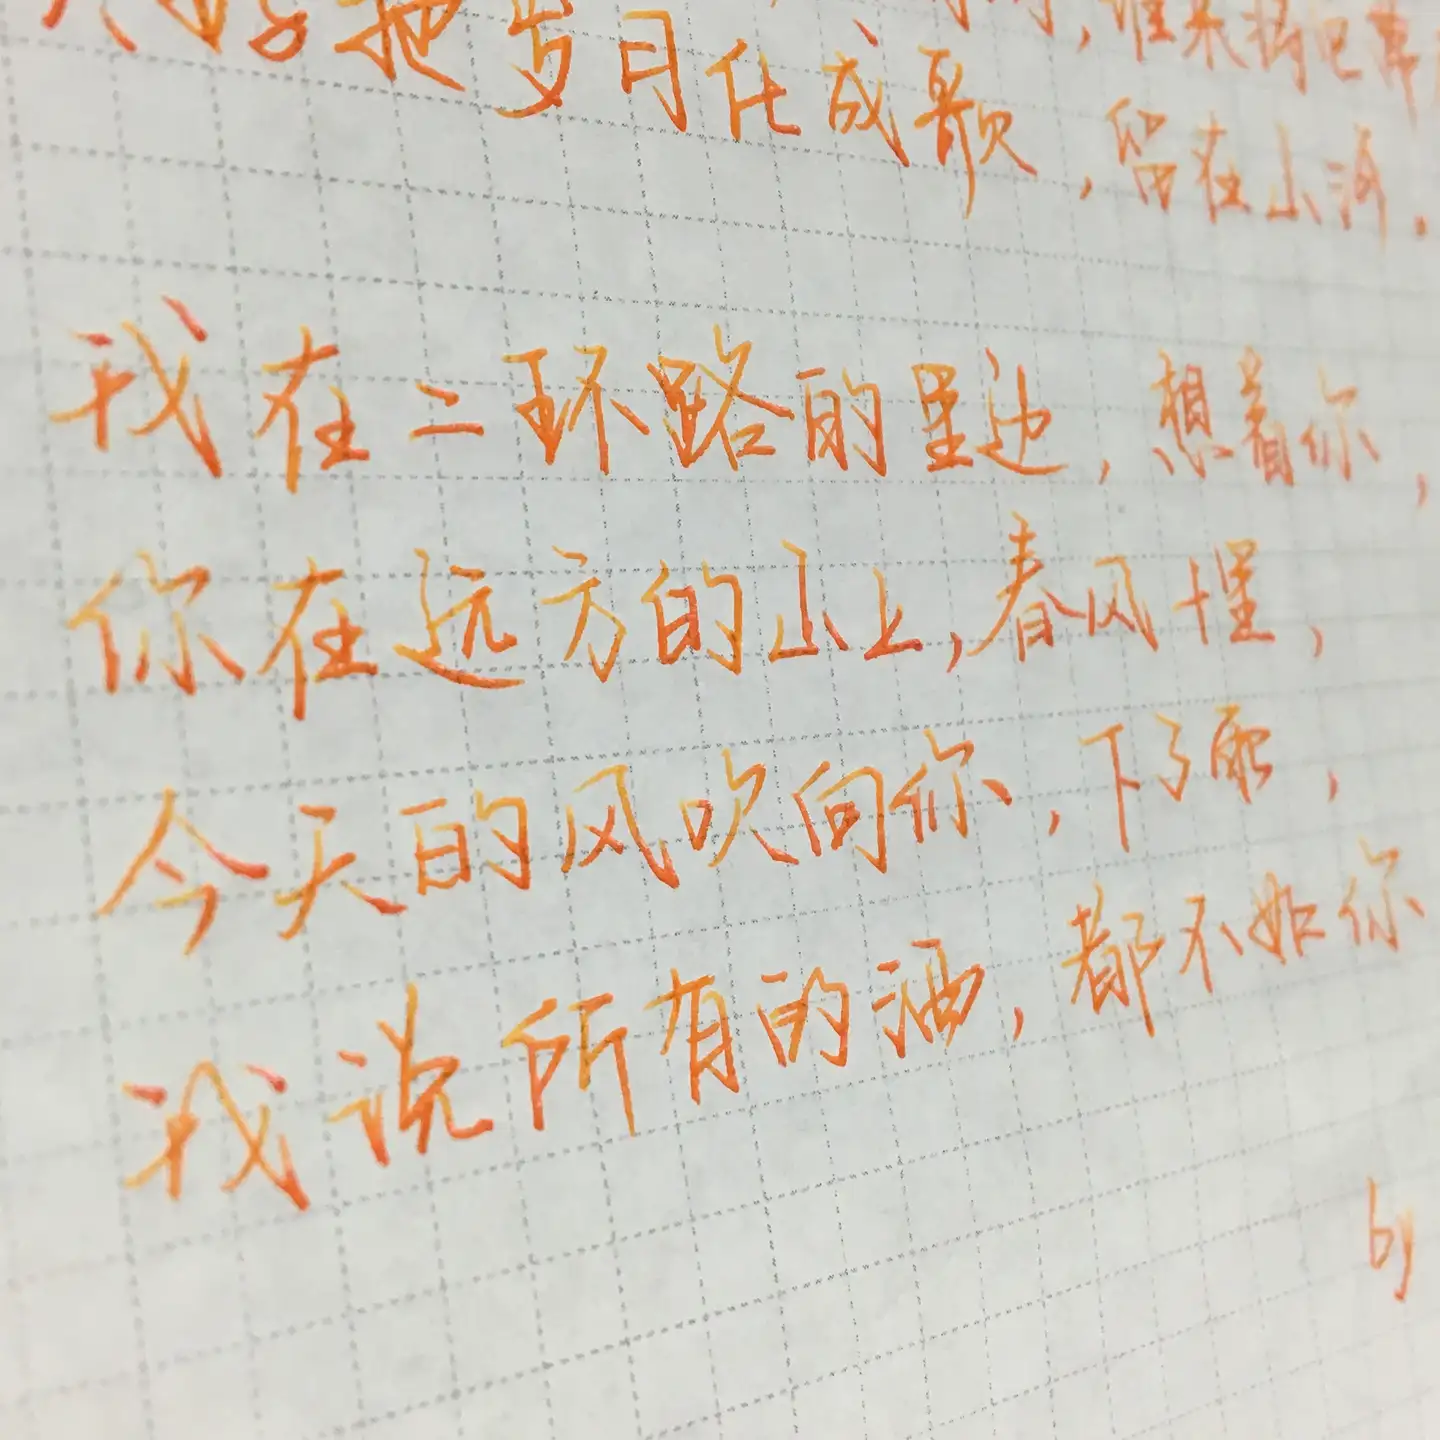 把岁月化成歌，留在山河.
我在二环路的里边，想着你，
你在远方的山上，春风十里，
今天的风吹向你，下了雨，
我说所有的酒，都不如你
by